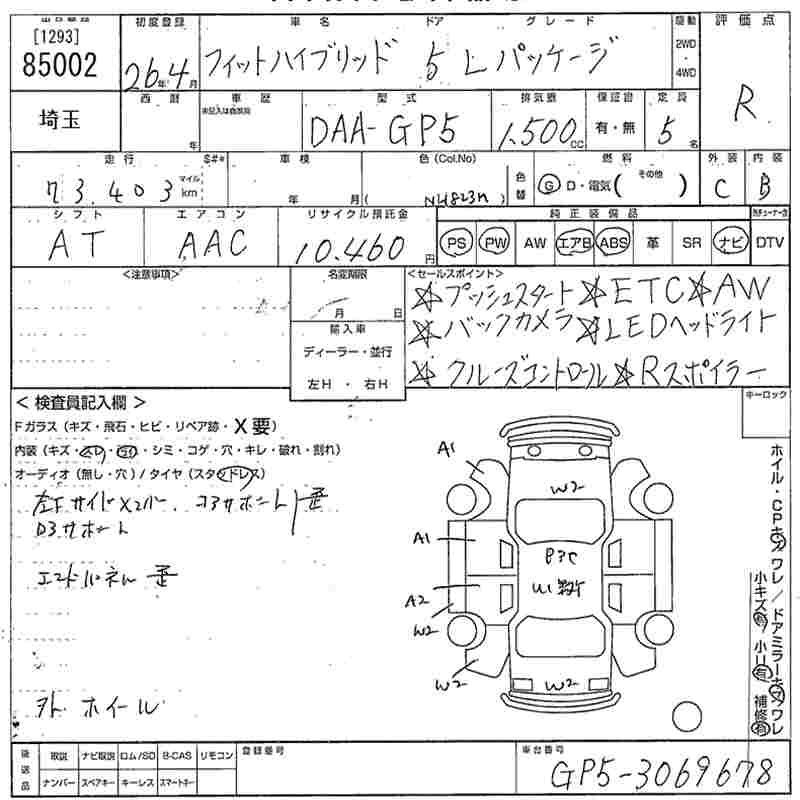 [1293]
85002
初度登録 車名 ドア グレード 駆動 評価点
26年4月 フィットハイブリッド 5 Lパッケージ 2WD
・4WD
R
埼玉 西暦 車歴 型式 排気量 保証書 定員
未記入は自家用
年 DAA-GP5 1,500cc 有・無 5名
走行 S#* 車検 色(Col.No) 色替 燃料 外装 内装
73.403 マイル km 年 月 ( NH823M ) G D・電気( その他 ) C B
シフト エアコン リサイクル預託金 純正装備品
AT AAC 10.460円 PS PW AW エアB ABS 革 SR ナビ DTV
<注意事項> 名変期限 <セールスポイント>
月 日 ☆プッシュスタート☆ETC☆AW
輸入車 ☆バックカメラ☆LEDヘッドライト
ディーラー・並行
左H ・ 右H ☆クルーズコントロール☆Rスポイラー
<検査員記入欄> キーロック
Fガラス(キズ・飛石・ヒビ・リペア跡・X要)
内装(キズ・・シミ・コゲ・穴・キレ・破れ・割れ)
オーディオ(無し・穴)/タイヤ(スタッドレス)
左Fサイドメンバー、コアサポート歪
ロアサポート
エンドパネル 歪
外 ホイール
A1
W2
A1
A2
W2
W2
W2
ホイル・CPキズワレ/ドアミラーキズワレ
小キズ有 小凹有 補修有
後送品 取説 ナビ取説 ロム/SD B-CAS リモコン 登録番号 車台番号
ナンバー スペアキー キーレス スマートキー GP5-3069678